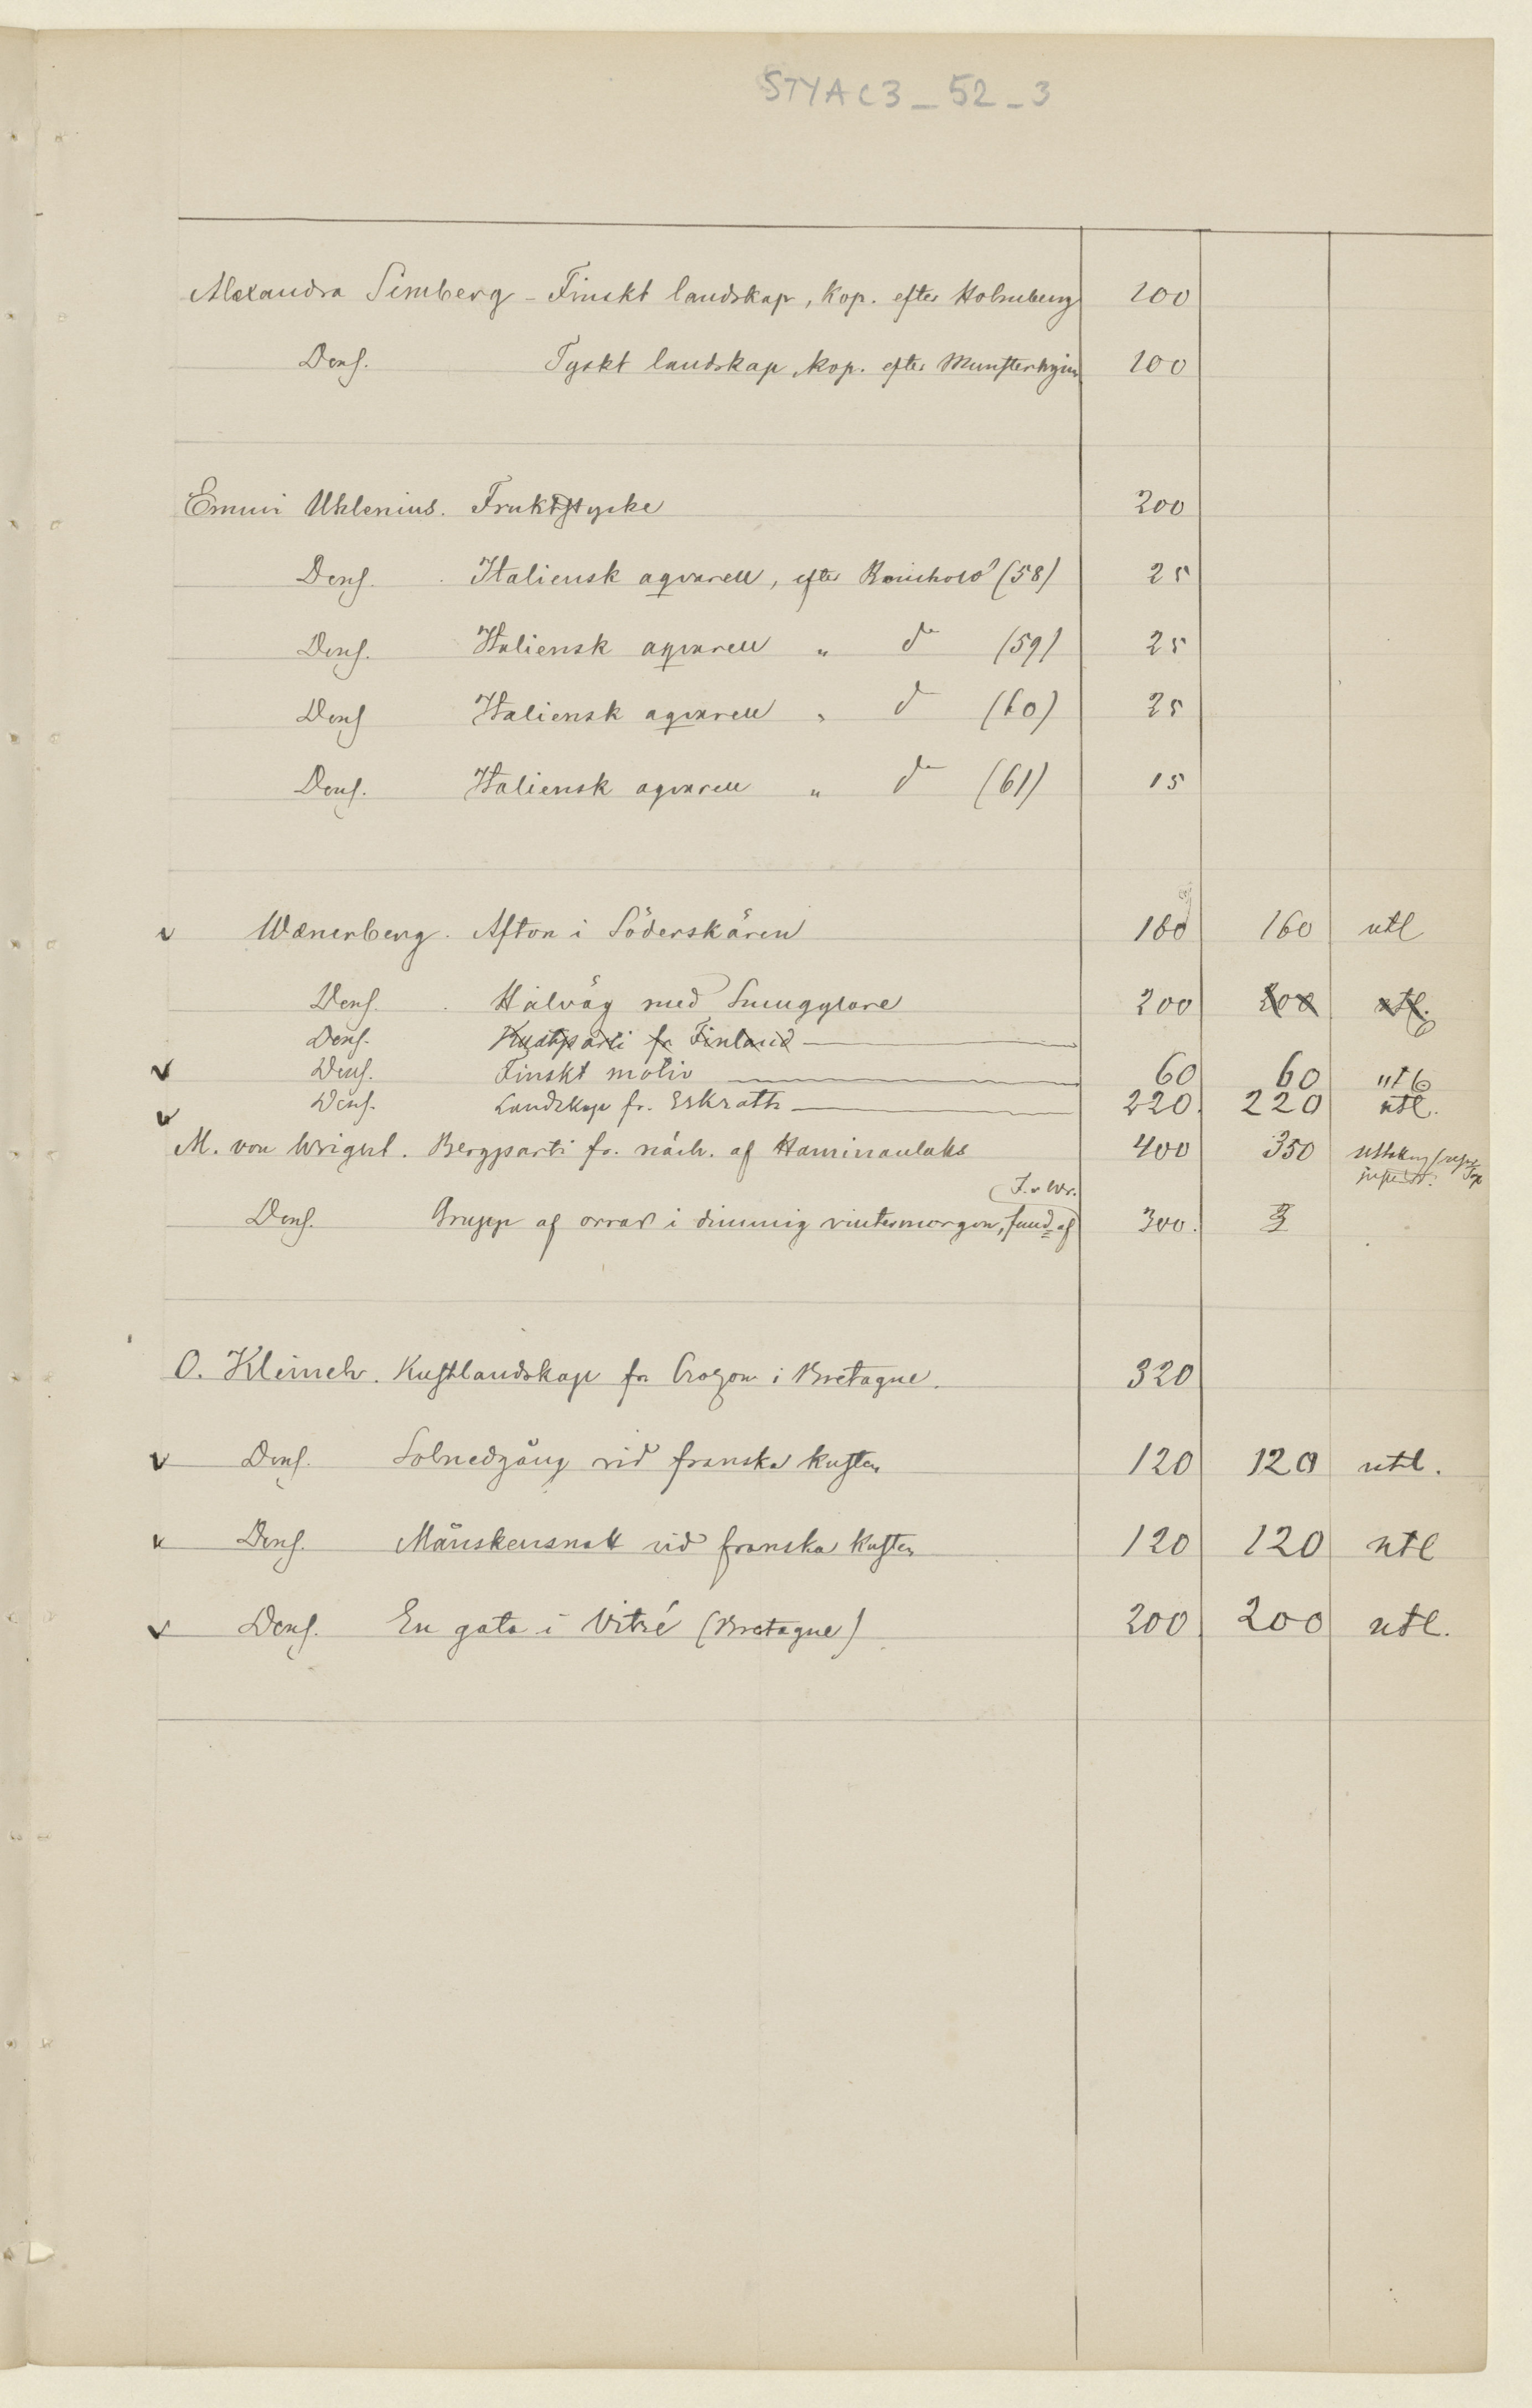 STYA C3_52_3
Alexandra Simberg - Finskt landskap, kop. efter Holmberg 100
Dens. Tyskt landskap, kop. efter Munsterhjm 100
Emmi Uhlenius. Fruktstycke 200
Dens. Italiensk aqvarell, efter Reinhold (58) 25
Dens. Italiensk aqvarell " do (59) 25
Dens Italiensk aqvarell " d (60) 25
Dens. Italiensk aqvarell " do (61) 15
v Wænerberg. Afton i Söderskären 160 160 utl
Dens. Hålväg med Smugglare 200 200 utl.
Dens. Kustparti fr Finland
v Dens. Finskt motiv 60 60 utl
v Dens. Landskap fr. Erkrath 220. 220 utl.
M. von Wright. Bergparti fr. närh. af Haminanlaks 400 350
(F. v Wr.
Dens. Grupp af orrar i dimmig vintermorgon, fund. af 300. 3
O. Kleineh. Kustlandskap fr. Crozon i Bretagne. 320
v Dens. Solnedgång vid franska kusten 120 120 utl.
v Dens. Månskensnatt vid franska kusten 120 120 utl
v Dens. En gata i Vitré (Bretagne) 200 200 utl.